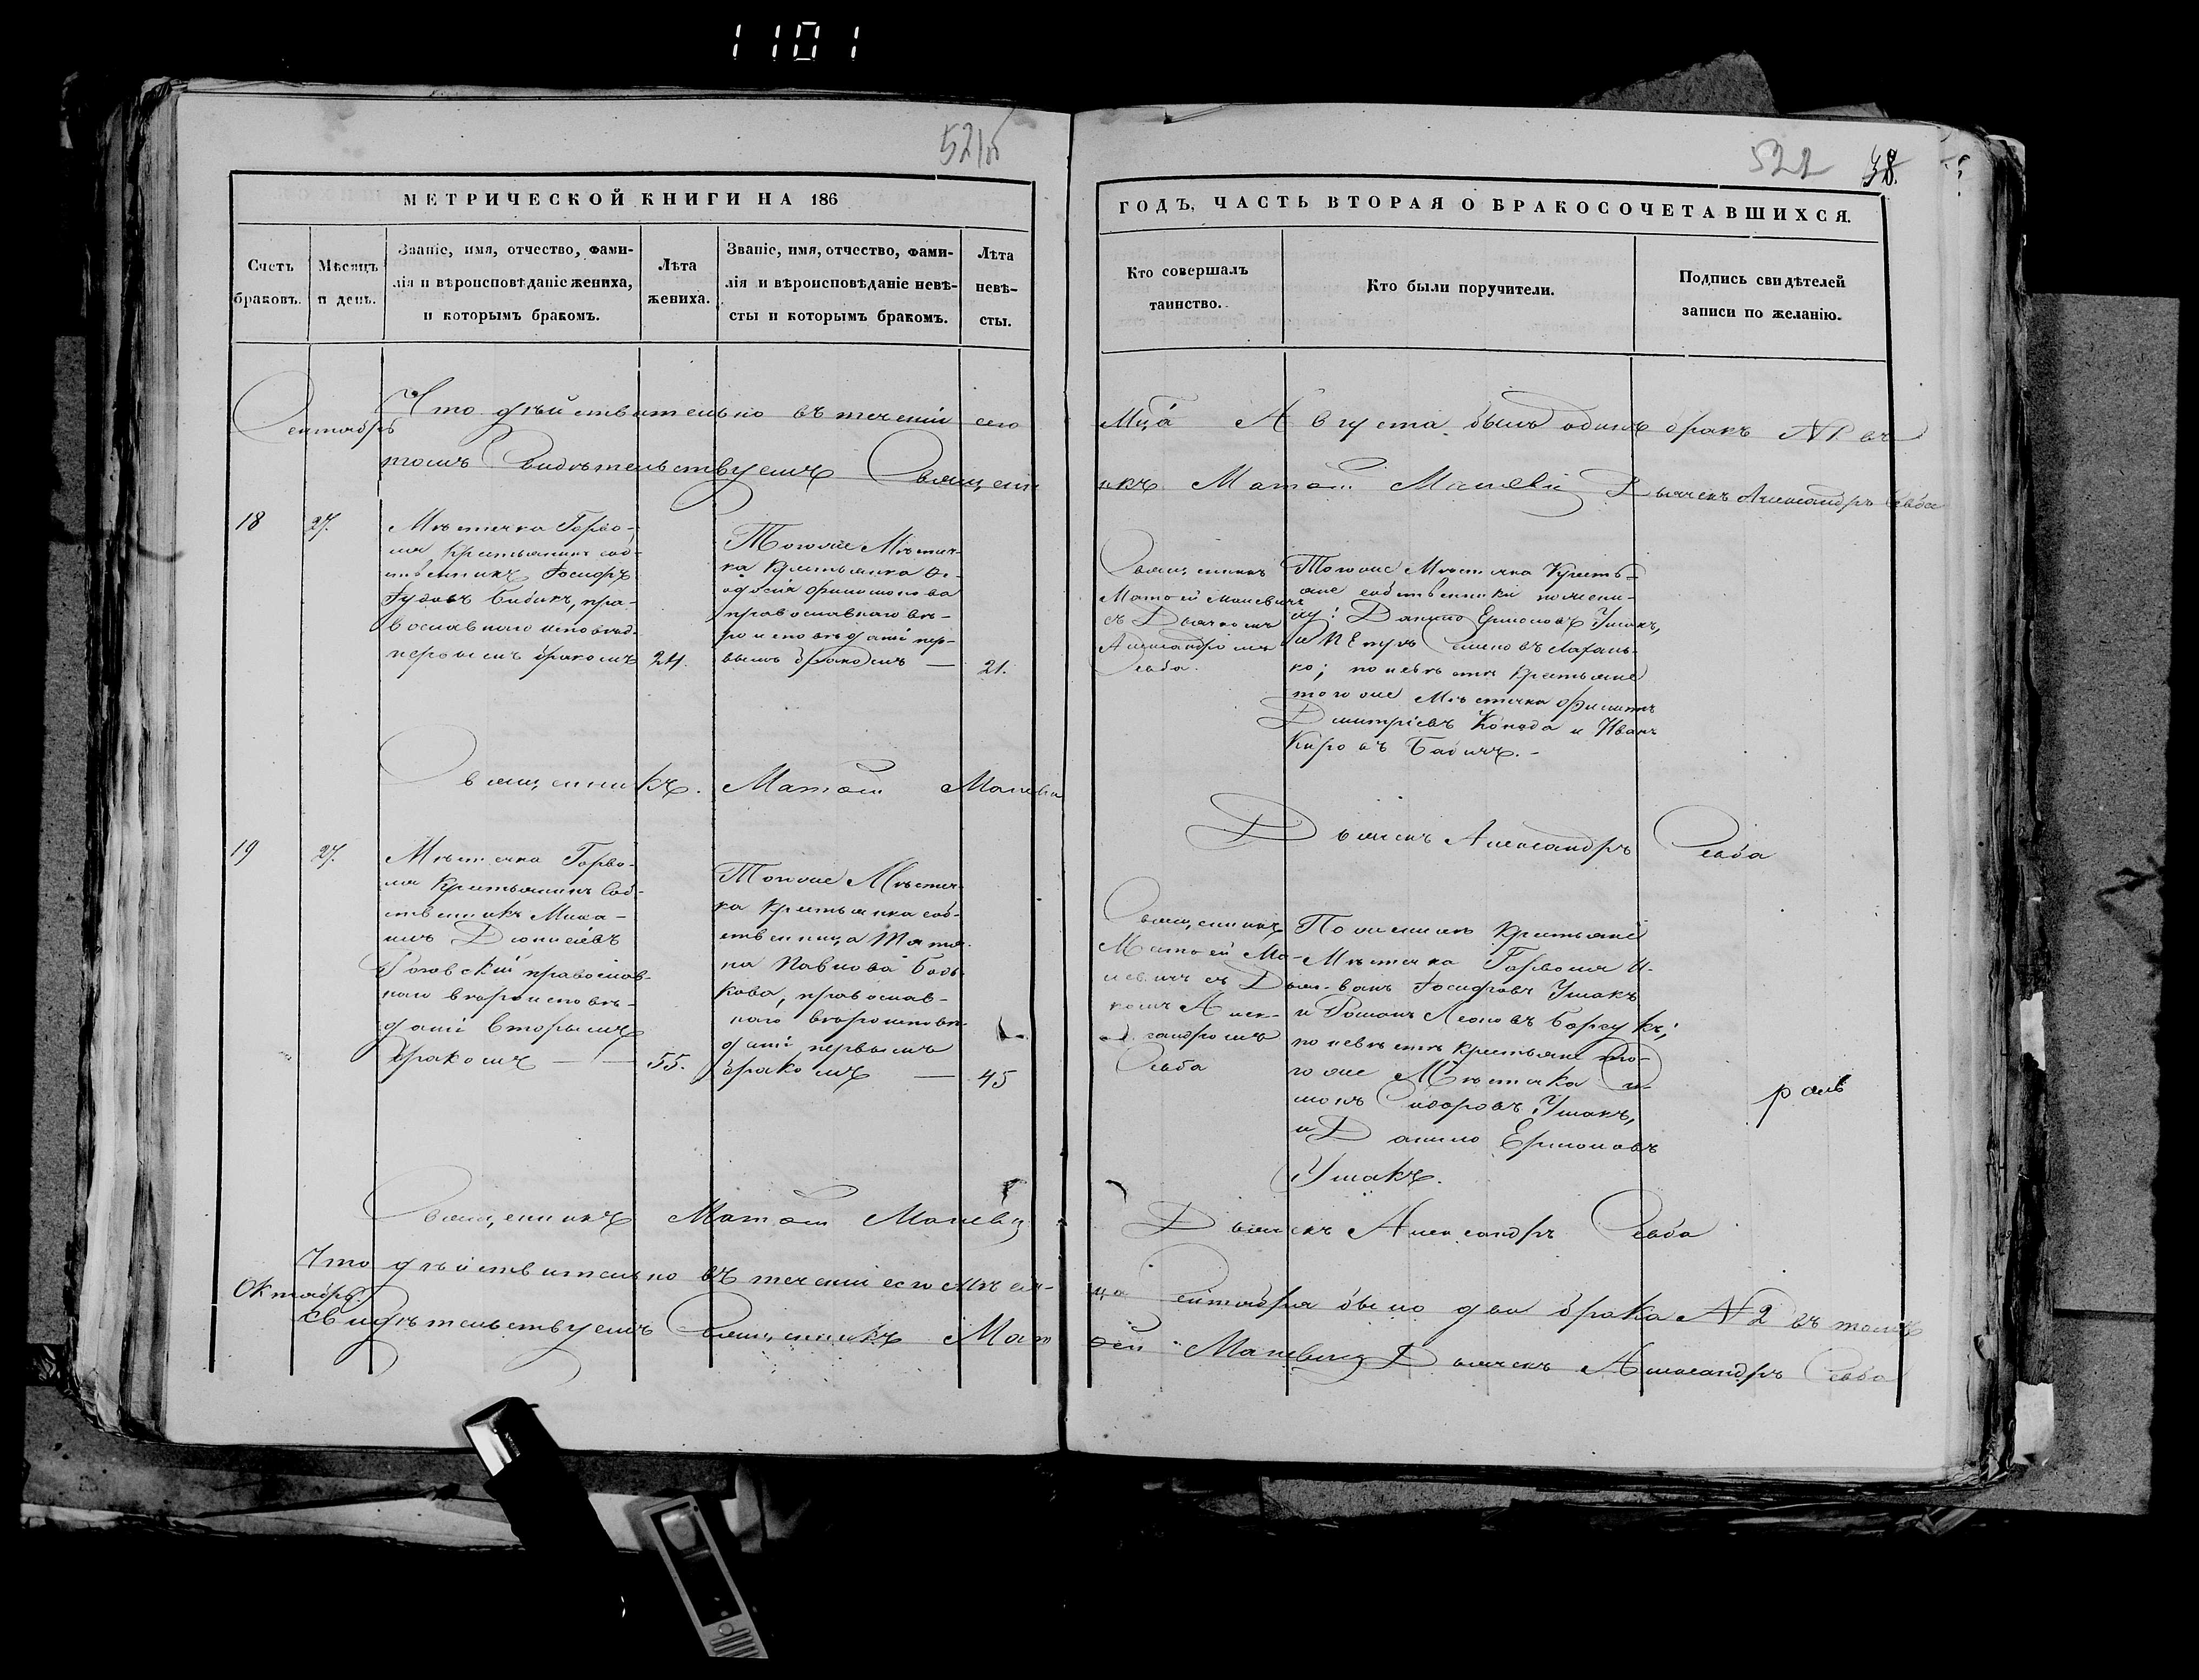 1101
521об
522
38.
МЕТРИЧЕСКОЙ КНИГИ НА 186
Счетъ
браковъ.
Мѣсяцъ
и день.
Званіе, имя, отчество, фами-
лія и вѣроисповѣданіе жениха,
и которымъ бракомъ.
Лѣта
жениха.
Званіе, имя, отчество, фами-
лія и вѣроисповѣданіе невѣ-
сты и которымъ бракомъ.
Лѣта
невѣ-
сты.
ГОДЪ, ЧАСТЬ ВТОРАЯ О БРАКОСОЧЕТАВШИХСЯ.
Кто совершалъ
таинство.
Кто были поручители.
Подпись свидѣтелей
записи по желанію.
Что дѣйствительно въ теченіи сего Мца Августа былъ одинъ бракъ №1 въ
Сентябрь
томъ Свидѣтельствуемъ Священникъ Матѳей Дьячекъ Александръ Сельба
18
27.
Мѣстечка Горво-
ля крестьянинъ соб-
ственникъ Іосифъ
православнаго исповѣд.
первымъ бракомъ
24.
Тогоже Мѣстеч-
ка Крестьянка Ѳе-
одосія Филимонова
православнаго вѣ-
роисповѣданія пер-
вымъ бракомъ —
21.
Священникъ
Матѳей Маневичъ
съ Дьячкомъ
Александромъ
Сельба.
Тогоже Мѣстечка Кресть-
яне собственники по жени-
ху: Данило Ермоловъ Ушакъ,
и Петръ Семеновъ
ко; по невѣстѣ крестьяне
тогоже Мѣстечка Филиппъ
Дмитріевъ и Иванъ
Кировъ Бабичъ.-
Священникъ. Матѳей
Дьячекъ Александръ Сельба
19
27.
Мѣстечка Горво-
ля Крестьянинъ Соб-
ственникъ Миха-
илъ Діонисіевъ
Роговскій православ-
наго вѣроисповѣ-
данія Вторымъ
бракомъ — —
55.
Тогоже Мѣстеч-
ка крестьянка соб-
ственница Татья-
на Павлова
православ-
наго вѣроисповѣ-
данія, первымъ
бракомъ —
45
Священникъ
Матѳей Ма-
невичъ съ Дьяч-
комъ Алек-
сандромъ
Сельба
По женихѣ крестьяне
Мѣстечка Горволя И-
ванъ Іосифовъ Ушакъ
и Романъ Леоновъ
по невѣстѣ крестьяне то-
гоже Мѣстечка Си-
монъ Сидоровъ Ушакъ,
и Данило Ермоловъ
Ушакъ.
Священникъ Матѳей
Дьячекъ Александръ Сельба
Что дѣйствительно въ теченіи сего Мѣся-
ца Сентября было два брака №2 въ томъ
Октябрь.
свидѣтельствуемъ Священникъ Матѳей Маневичъ Дьячекъ Александръ Сельба